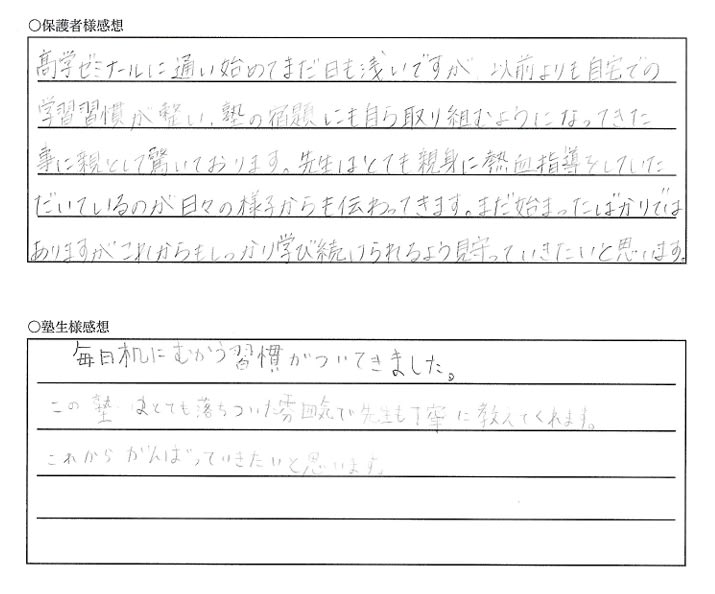 ○保護者様感想
高学ゼミナールに通い始めてまだ日も浅いですが、以前よりも自宅での
学習習慣が整い、塾の宿題にも自ら取り組むようになってきた
事に親として驚いております。先生はとても親身に熱血指導をしていた
だいているのが日々の様子からも伝わってきます。まだ始まったばかりでは
ありますがこれからもしっかり学び続けられるよう見守っていきたいと思います。
○塾生様感想
毎日机にむかう習慣がついてきました。
この塾はとても落ちついた雰囲気で先生も丁寧に教えてくれます。
これからがんばっていきたいと思います。